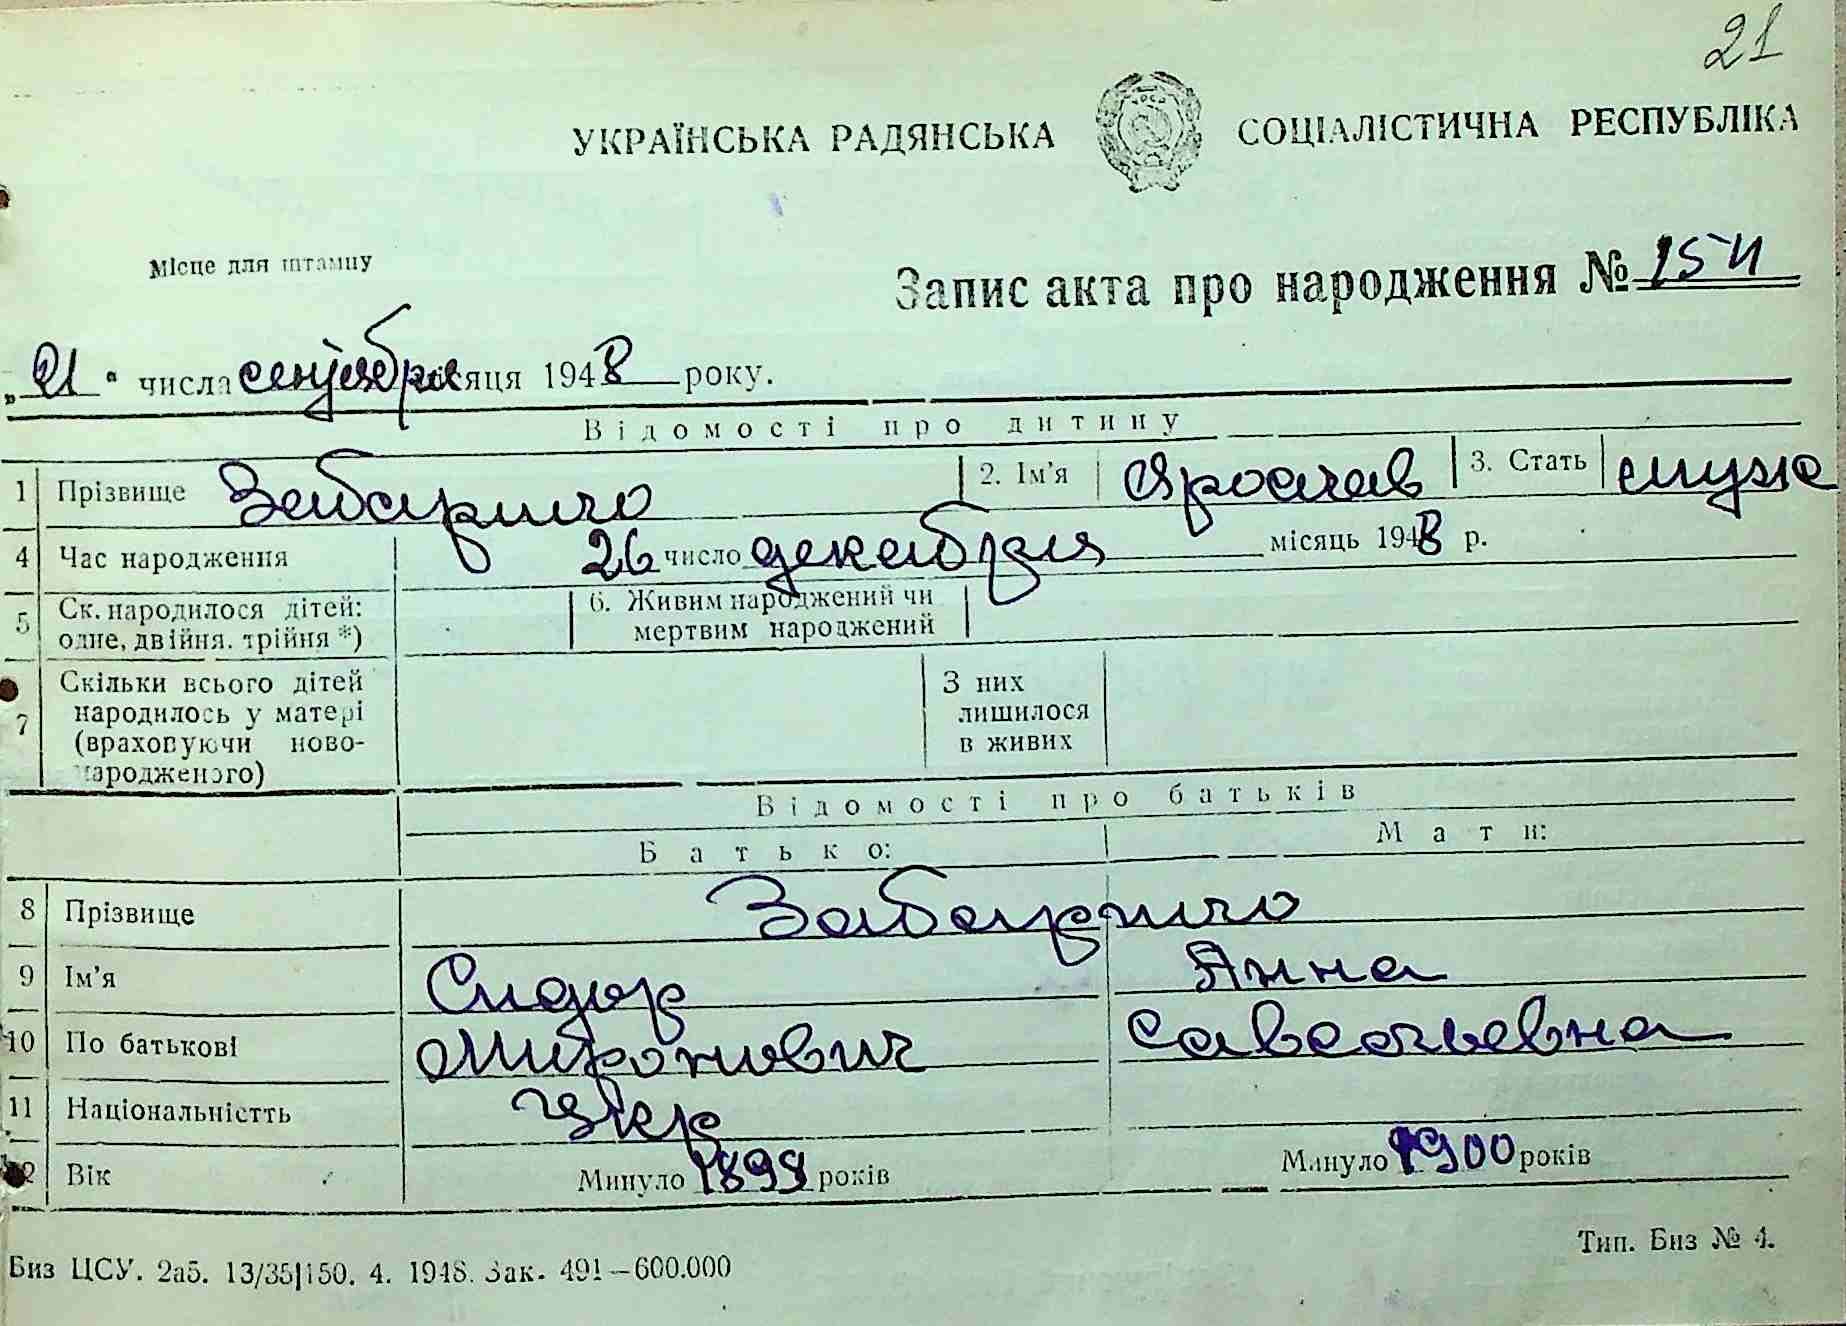 21
УКРАЇНСЬКА РАДЯНСЬКА СОЦІАЛІСТИЧНА РЕСПУБЛІКА
Місце для штампу
Запис акта про народження № 154
„21“ числа сентября місяця 1948 року.
Відомості про дитину
1 Прізвище Забарило 2. Ім'я Ярослав 3. Стать муж
4 Час народження 26 число декабря місяць 1948 р.
5 Ск. народилося дітей: одне, двійня, трійня *) 6. Живим народжений чи мертвим народжений
7 Скільки всього дітей народилось у матері (враховуючи новонародженого) З них лишилося в живих
Відомості про батьків
Батько: Мати:
8 Прізвище Забарило
9 Ім'я Сидор Анна
10 По батькові Миронович Савельевна
11 Національність укр
12 Вік Минуло років Минуло 1900 років
Биз ЦСУ. 2а5. 13/35|150. 4. 1948. Зак. 491—600.000 Тип. Биз № 4.